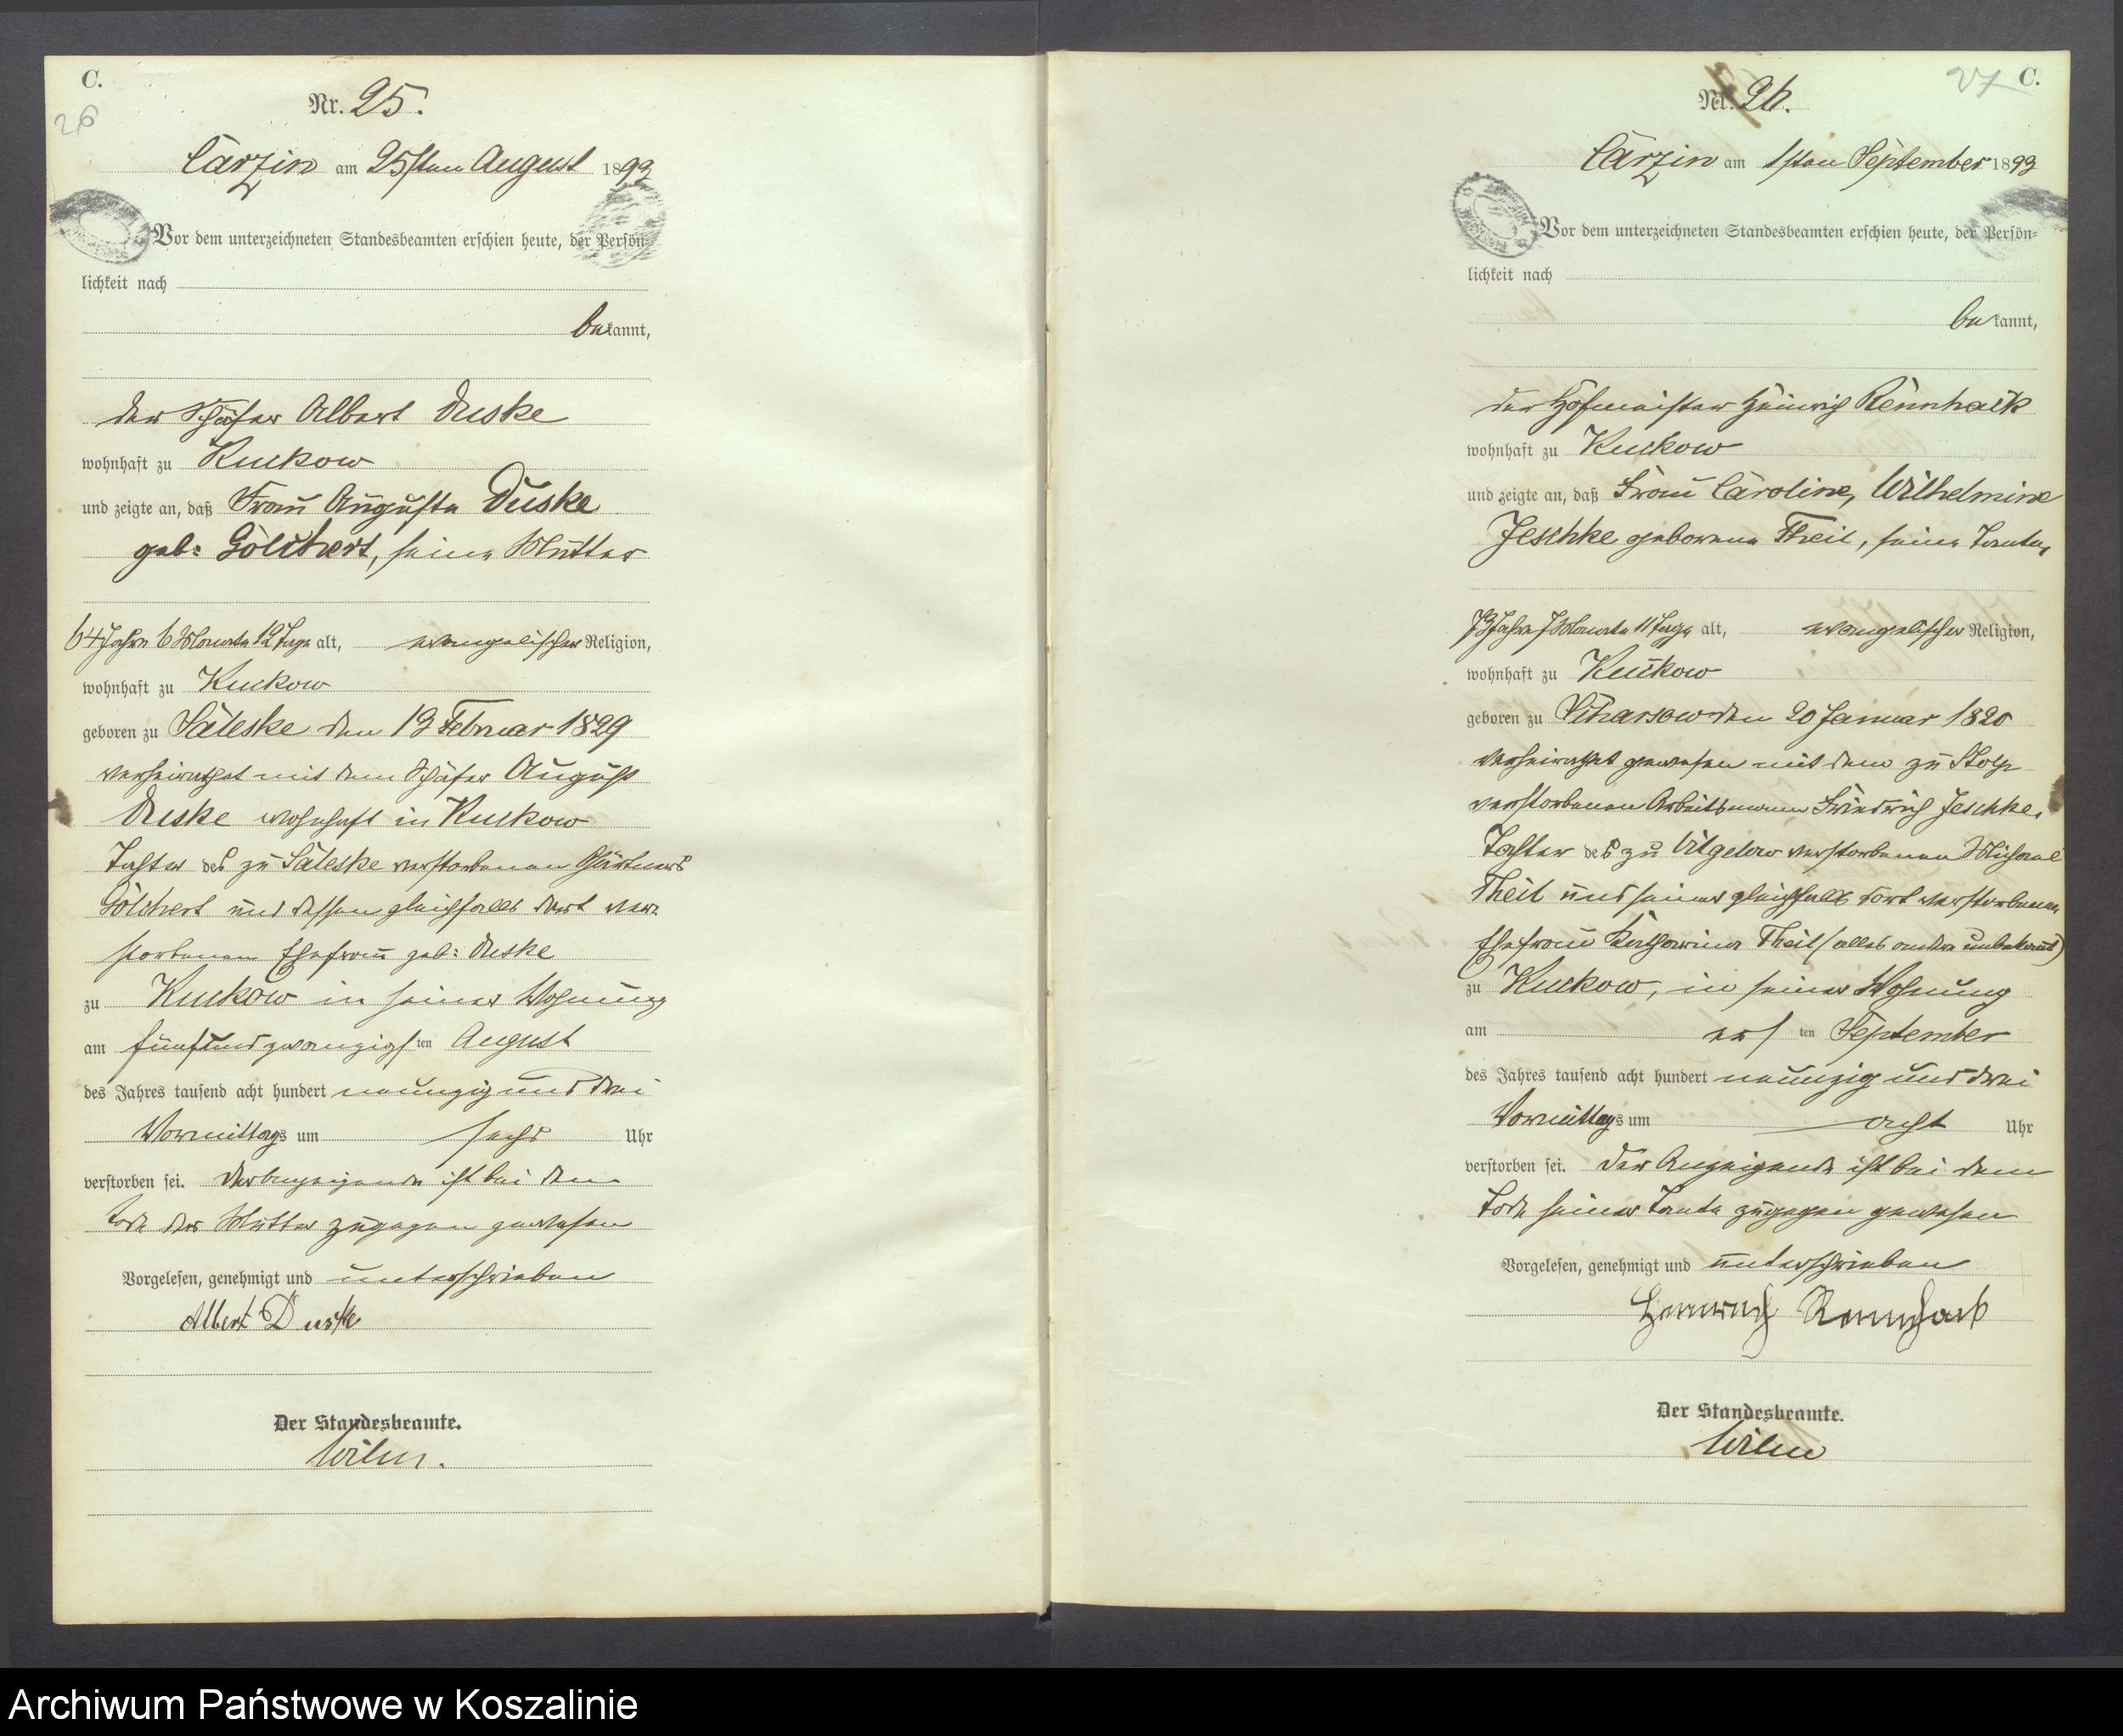 C.
26
Nr. 25.
Carzin am 25sten August 1893
Vor dem unterzeichneten Standesbeamten erschien heute, der Persön-
lichkeit nach
bekannt,
der Schäfer Albert Duske
wohnhaft zu Kuckow
und zeigte an, daß Frau Auguste Duske
geb: Golchert, seine Mutter
64 Jahre 6 Monate 12 Tage alt, evangelischer Religion,
wohnhaft zu Kuckow
geboren zu Saleske den 13 Februar 1829
verheirathet mit dem Schäfer August
Duske wohnhaft in Kuckow
Tochter des zu Saleske verstorbenen Gärtners
Golchert und dessen gleichfalls dort ver-
storbenen Ehefrau geb: Duske
zu Kuckow in seiner Wohnung
am fünfundzwanzigsten August
des Jahres tausend acht hundert neunzig und drei
Vormittags um sechs Uhr
verstorben sei. Der Anzeigende ist bei dem
Tode der Mutter zugegen gewesen
Vorgelesen, genehmigt und unterschrieben
Albert Duske
Der Standesbeamte.
Wilm.
27 C.
Nr. 26.
Carzin am 1sten September 1893
Vor dem unterzeichneten Standesbeamten erschien heute, der Persön-
lichkeit nach
bekannt,
der Hofmeister Heinrich Rennhack
wohnhaft zu Kuckow
und zeigte an, daß Frau Caroline, Wilhelmine
Jeschke geborene Theil, seine Tante,
73 Jahre 7 Monate 11 Tage alt, evangelischer Religion,
wohnhaft zu Kuckow
geboren zu den 20 Januar 1820
verheirathet gewesen mit dem zu Stolp
verstorbenen Arbeitsmann Friedrich Jeschke,
Tochter des zu Vitgelow verstorbenen Michael
Theil und seiner gleichfalls dort verstorbenen
Ehefrau Katharine Theil (alles andere unbekannt)
zu Kuckow, in seiner Wohnung
am ersten September
des Jahres tausend acht hundert neunzig und drei
Vormittags um acht Uhr
verstorben sei. Der Anzeigende ist bei dem
Tode seiner Tante zugegen gewesen
Vorgelesen, genehmigt und unterschrieben
Heinrich Rennhack
Der Standesbeamte.
Wilm
Archiwum Państwowe w Koszalinie